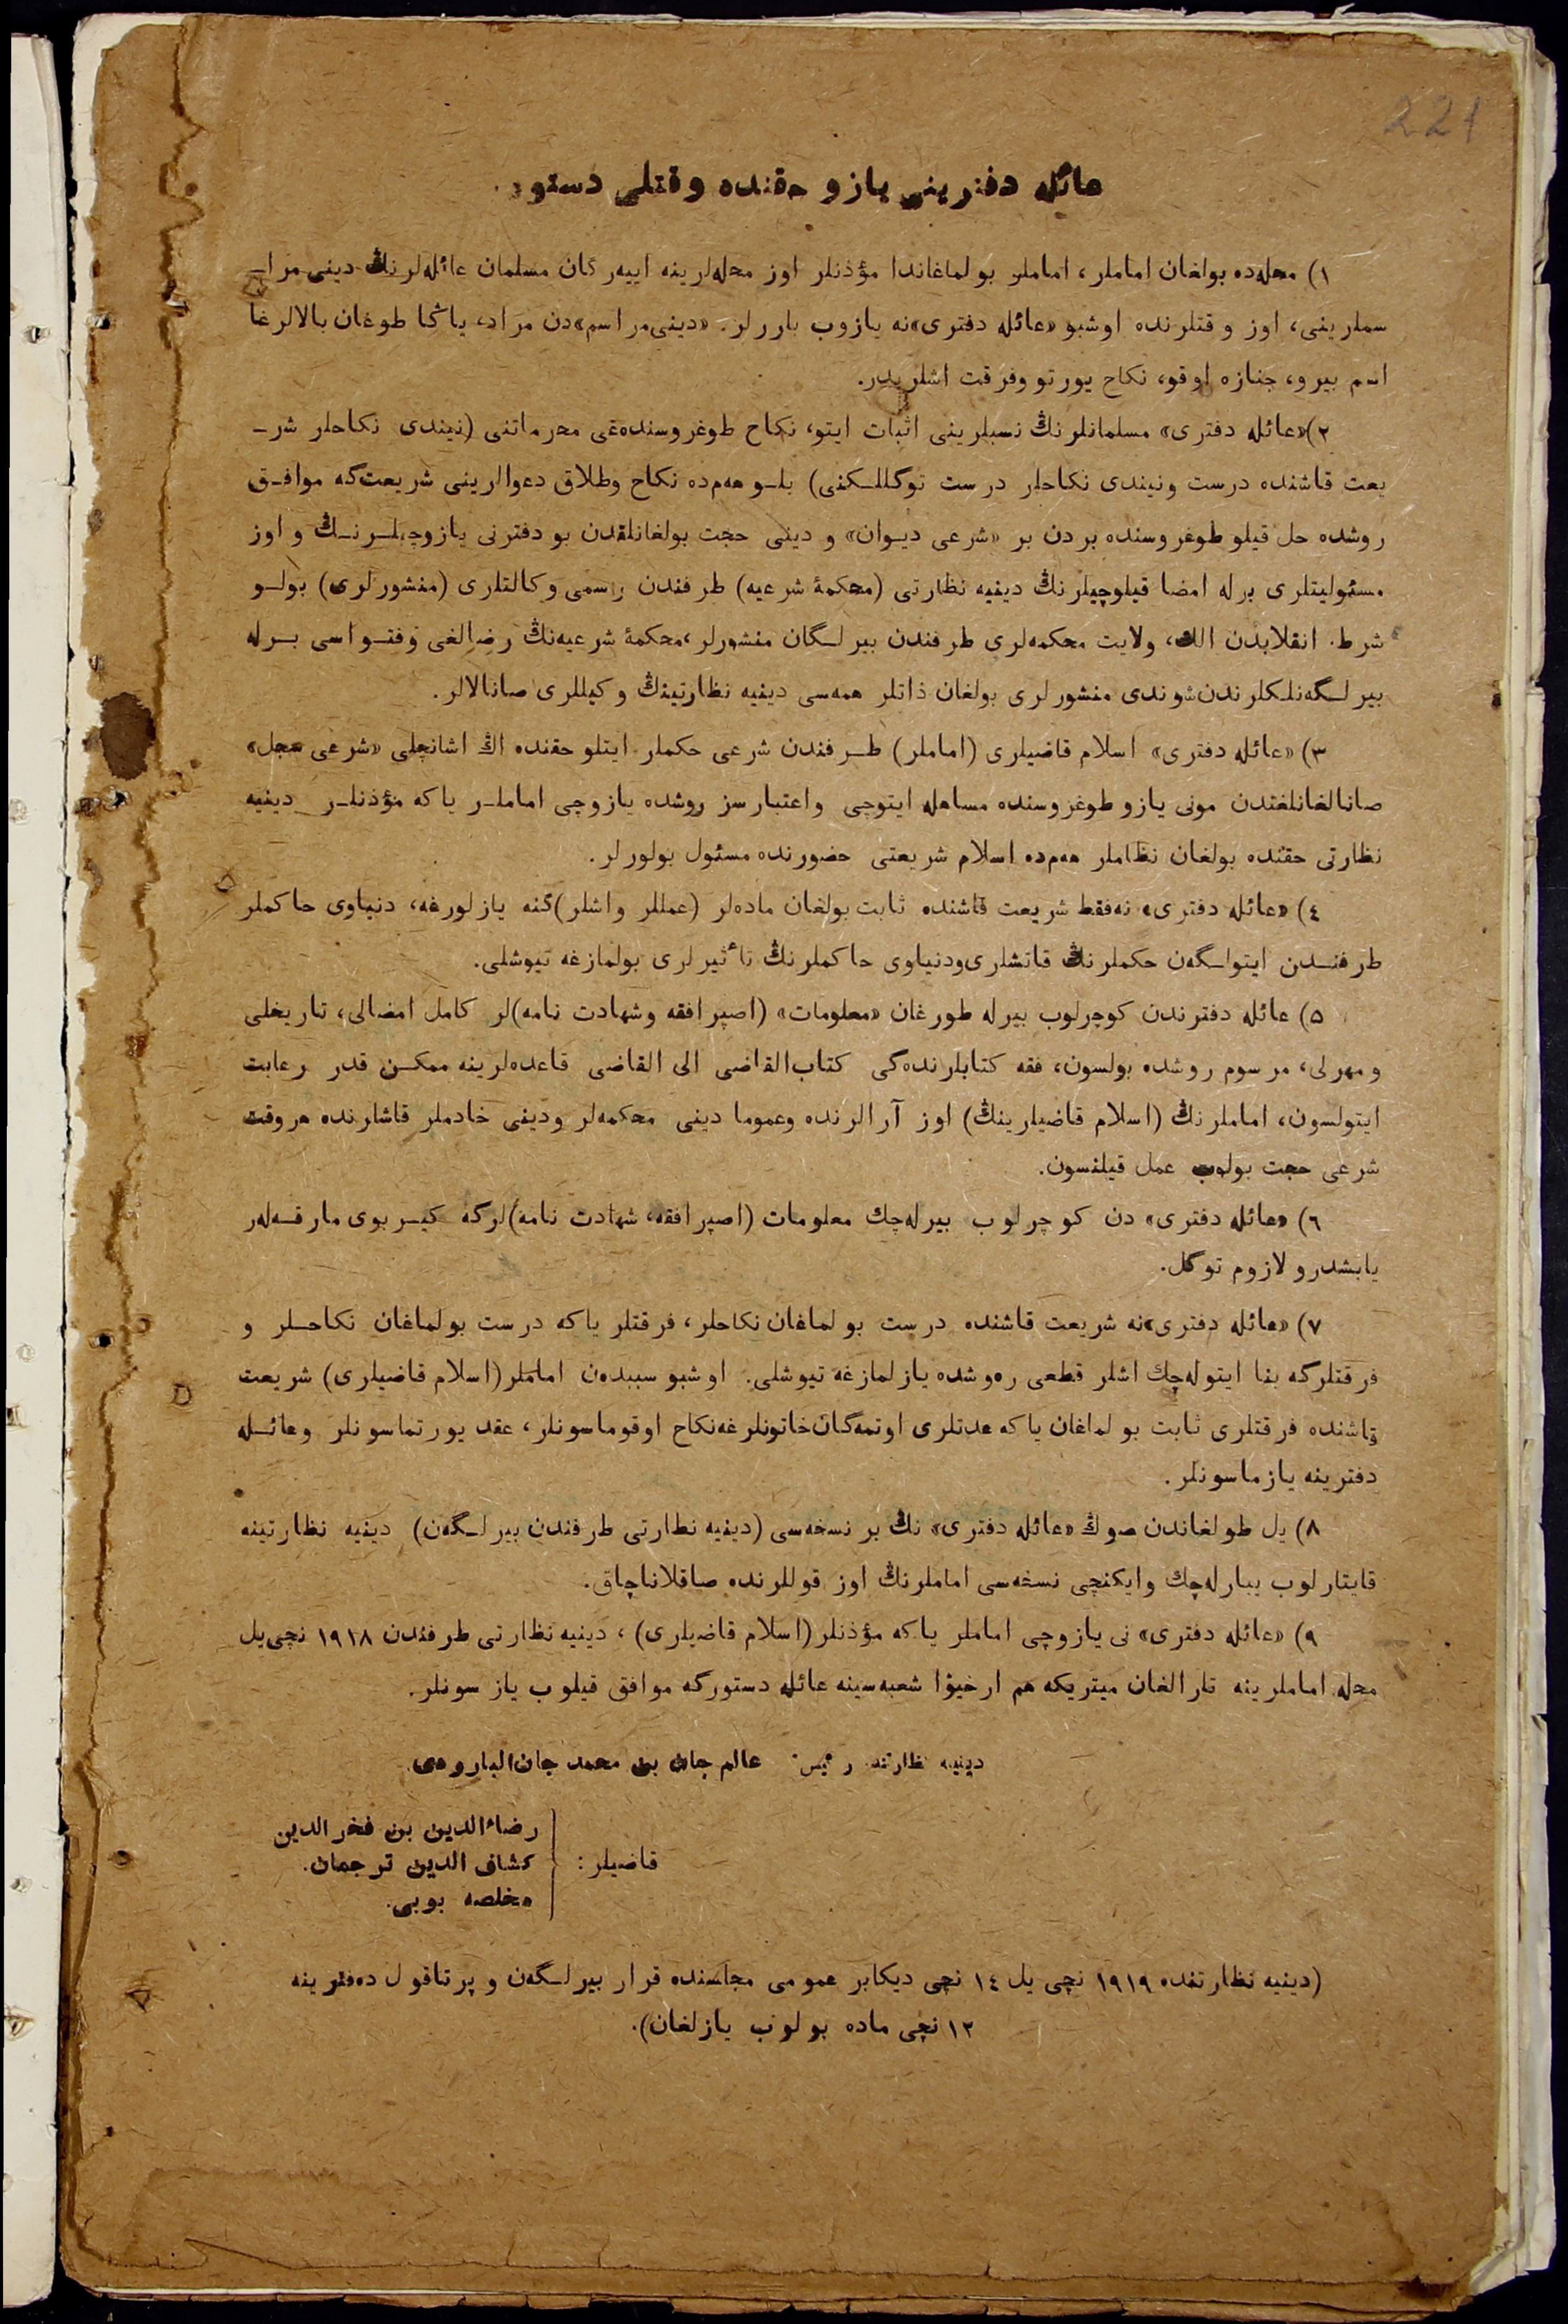 221
عائله دفترينى يازو حقنده وقتلى دستور.
١) محله‌ده بولغان اماملر، اماملر بولماغاندا مؤذنلر اوز محله‌لرينه اييه‌رگان مسلمان عائله‌لرنڭ دينى مرا‌ـ
سملرينى، اوز وقتلرنده اوشبو «عائله دفترى»نه يازوب باررلر. «دينى مراسم»دن مراد، ياڭا طوغان بالالرغا
اسم بيرو، جنازه اوقو، نكاح يورتو وفرقت اشلريدر.
٢) «عائله دفترى» مسلمانلرنڭ نسبلرينى اثبات ايتو، نكاح طوغروسنده‌غى محرماتنى (نيندى نكاحلر شر‌ـ
يعت قاشنده درست ونيندى نكاحلر درست توگللـكنى) بلـو هه‌م‌ده نكاح وطلاق دعوالرينى شريعت‌كه موافـق
روشده حل قيلو طوغروسنده بردن بر «شرعى ديـوان» و دينى حجت بولغانلقدن بو دفترنى يازوچيلـرنـڭ و اوز
مسئوليتلرى برله امضا قيلوچيلرنڭ دينيه نظارتى (محكمۀ شرعيه) طرفندن رسمى وكالتلرى (منشورلرى) بولـو
شرط. انقلابدن الك، ولايت محكمه‌لرى طرفندن بيرلـگان منشورلر، محكمۀ شرعيه‌نڭ رضالغى وفتـواسى بـرله
بيرلـگه‌نلـكلرندن شوندى منشورلرى بولغان ذاتلر همه‌سى دينيه نظارتينڭ وكيللرى صانالالر.
٣) «عائله دفترى» اسلام قاضيلرى (اماملر) طـرفندن شرعى حكملر ايتلو حقنده اڭ اشانچلى «شرعى سجل»
صانالغانلغندن مونى يازو طوغروسنده مساهله ايتوچى واعتبارسز روشده يازوچى اماملـر ياكه مؤذنلـر دينيه
نظارتى حقنده بولغان نظاملر هه‌م‌ده اسلام شريعتى حضورنده مسئول بولورلر.
٤) «عائله دفترى» نه‌فقط شريعت قاشنده ثابت بولغان ماده‌لر (عمللر واشلر)گنه يازلورغه، دنياوى حاكملر
طرفنـدن ايتولـگه‌ن حكملرنڭ قاتشلرى‌ودنياوى حاكملرنڭ تأثيرلرى بولمازغه تيوشلى.
٥) عائله دفترندن كوچرلوب بيرله طورغان «معلومات» (اصپرافقه وشهادت نامه)لر كامل امضالى، تاريخلى
ومهرلى، مرسوم روشده بولسون، فقه كتابلرنده‌گى كتاب‌القاضى الى القاضى قاعده‌لرينه ممكـن قدر رعايت
ايتولسون، اماملرنڭ (اسلام قاضيلرينڭ) اوز آرالرنده وعموما دينى محكمه‌لر ودينى خادملر قاشلرنده هروقت
شرعى حجت بولوب عمل قيلنسون.
٦) «عائله دفترى» دن كوچرلوب بيرله‌چك معلومات (اصپرافقه، شهادت نامه)لرگه كيـربوى مارقـه‌لر
يابشدرو لازوم توگل.
٧) «عائله دفترى»نه شريعت قاشنده درست بولماغان نكاحلر، فرقتلر ياكه درست بولماغان نكاحـلر و
فرقتلرگه بنا ايتوله‌چك اشلر قطعى ره‌وشده يازلمازغه تيوشلى. اوشبو سببده‌ن اماملر (اسلام قاضيلرى) شريعت
قاشنده فرقتلرى ثابت بولماغان ياكه عدتلرى اوتمه‌گان خاتونلرغه نكاح اوقوماسونلر، عقد يورتماسونلر وعائـله
دفترينه يازماسونلر.
٨) يل طولغاندن صوڭ «عائله دفترى» نڭ بر نسخه‌سى (دينيه نظارتى طرفندن بيرلـگه‌ن) دينيه نظارتينه
قايتارلوب يبارله‌چك وايكنچى نسخه‌سى اماملرنڭ اوز قوللرنده صاقلاناچاق.
٩) «عائله دفترى» نى يازوچى اماملر ياكه مؤذنلر (اسلام قاضيلرى)، دينيه نظارتى طرفندن ١٩١٨ نچى‌يل
محله اماملرينه تارالغان ميتريكه هم ارخيوا شعبه‌سينه عائله دستورگه موافق قيلوب يازسونلر.
دينيه نظارتنده رئيس: عالم جان بن محمد جان‌البارودى.
قاضيلر:
رضاءالدين بن فخرالدين
كشاف الدين ترجمان.
مخلصه بوبى.
(دينيه نظارتنده ١٩١٩ نچى يل ١٤ نچى ديكابر عمومى مجلسنده قرار بيرلـگه‌ن و پرتاقول ده‌فترينه
١٢ نچى ماده بولوب يازلغان).